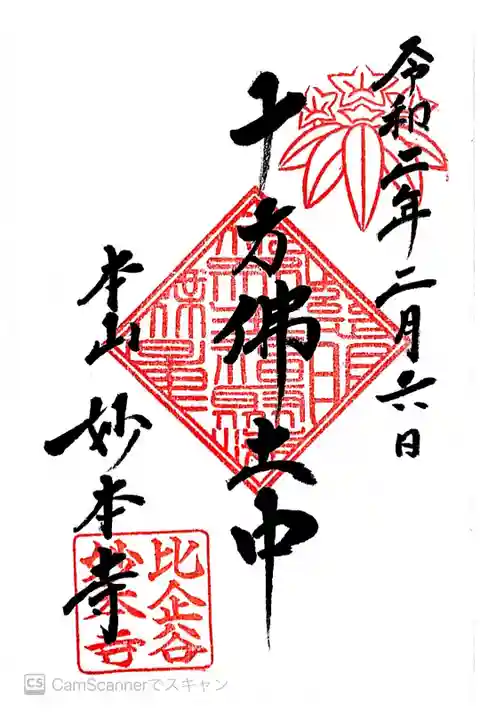 令和二年二月六日
十方佛土中
本山 妙本寺
比企谷
妙本寺
CS CamScannerでスキャン